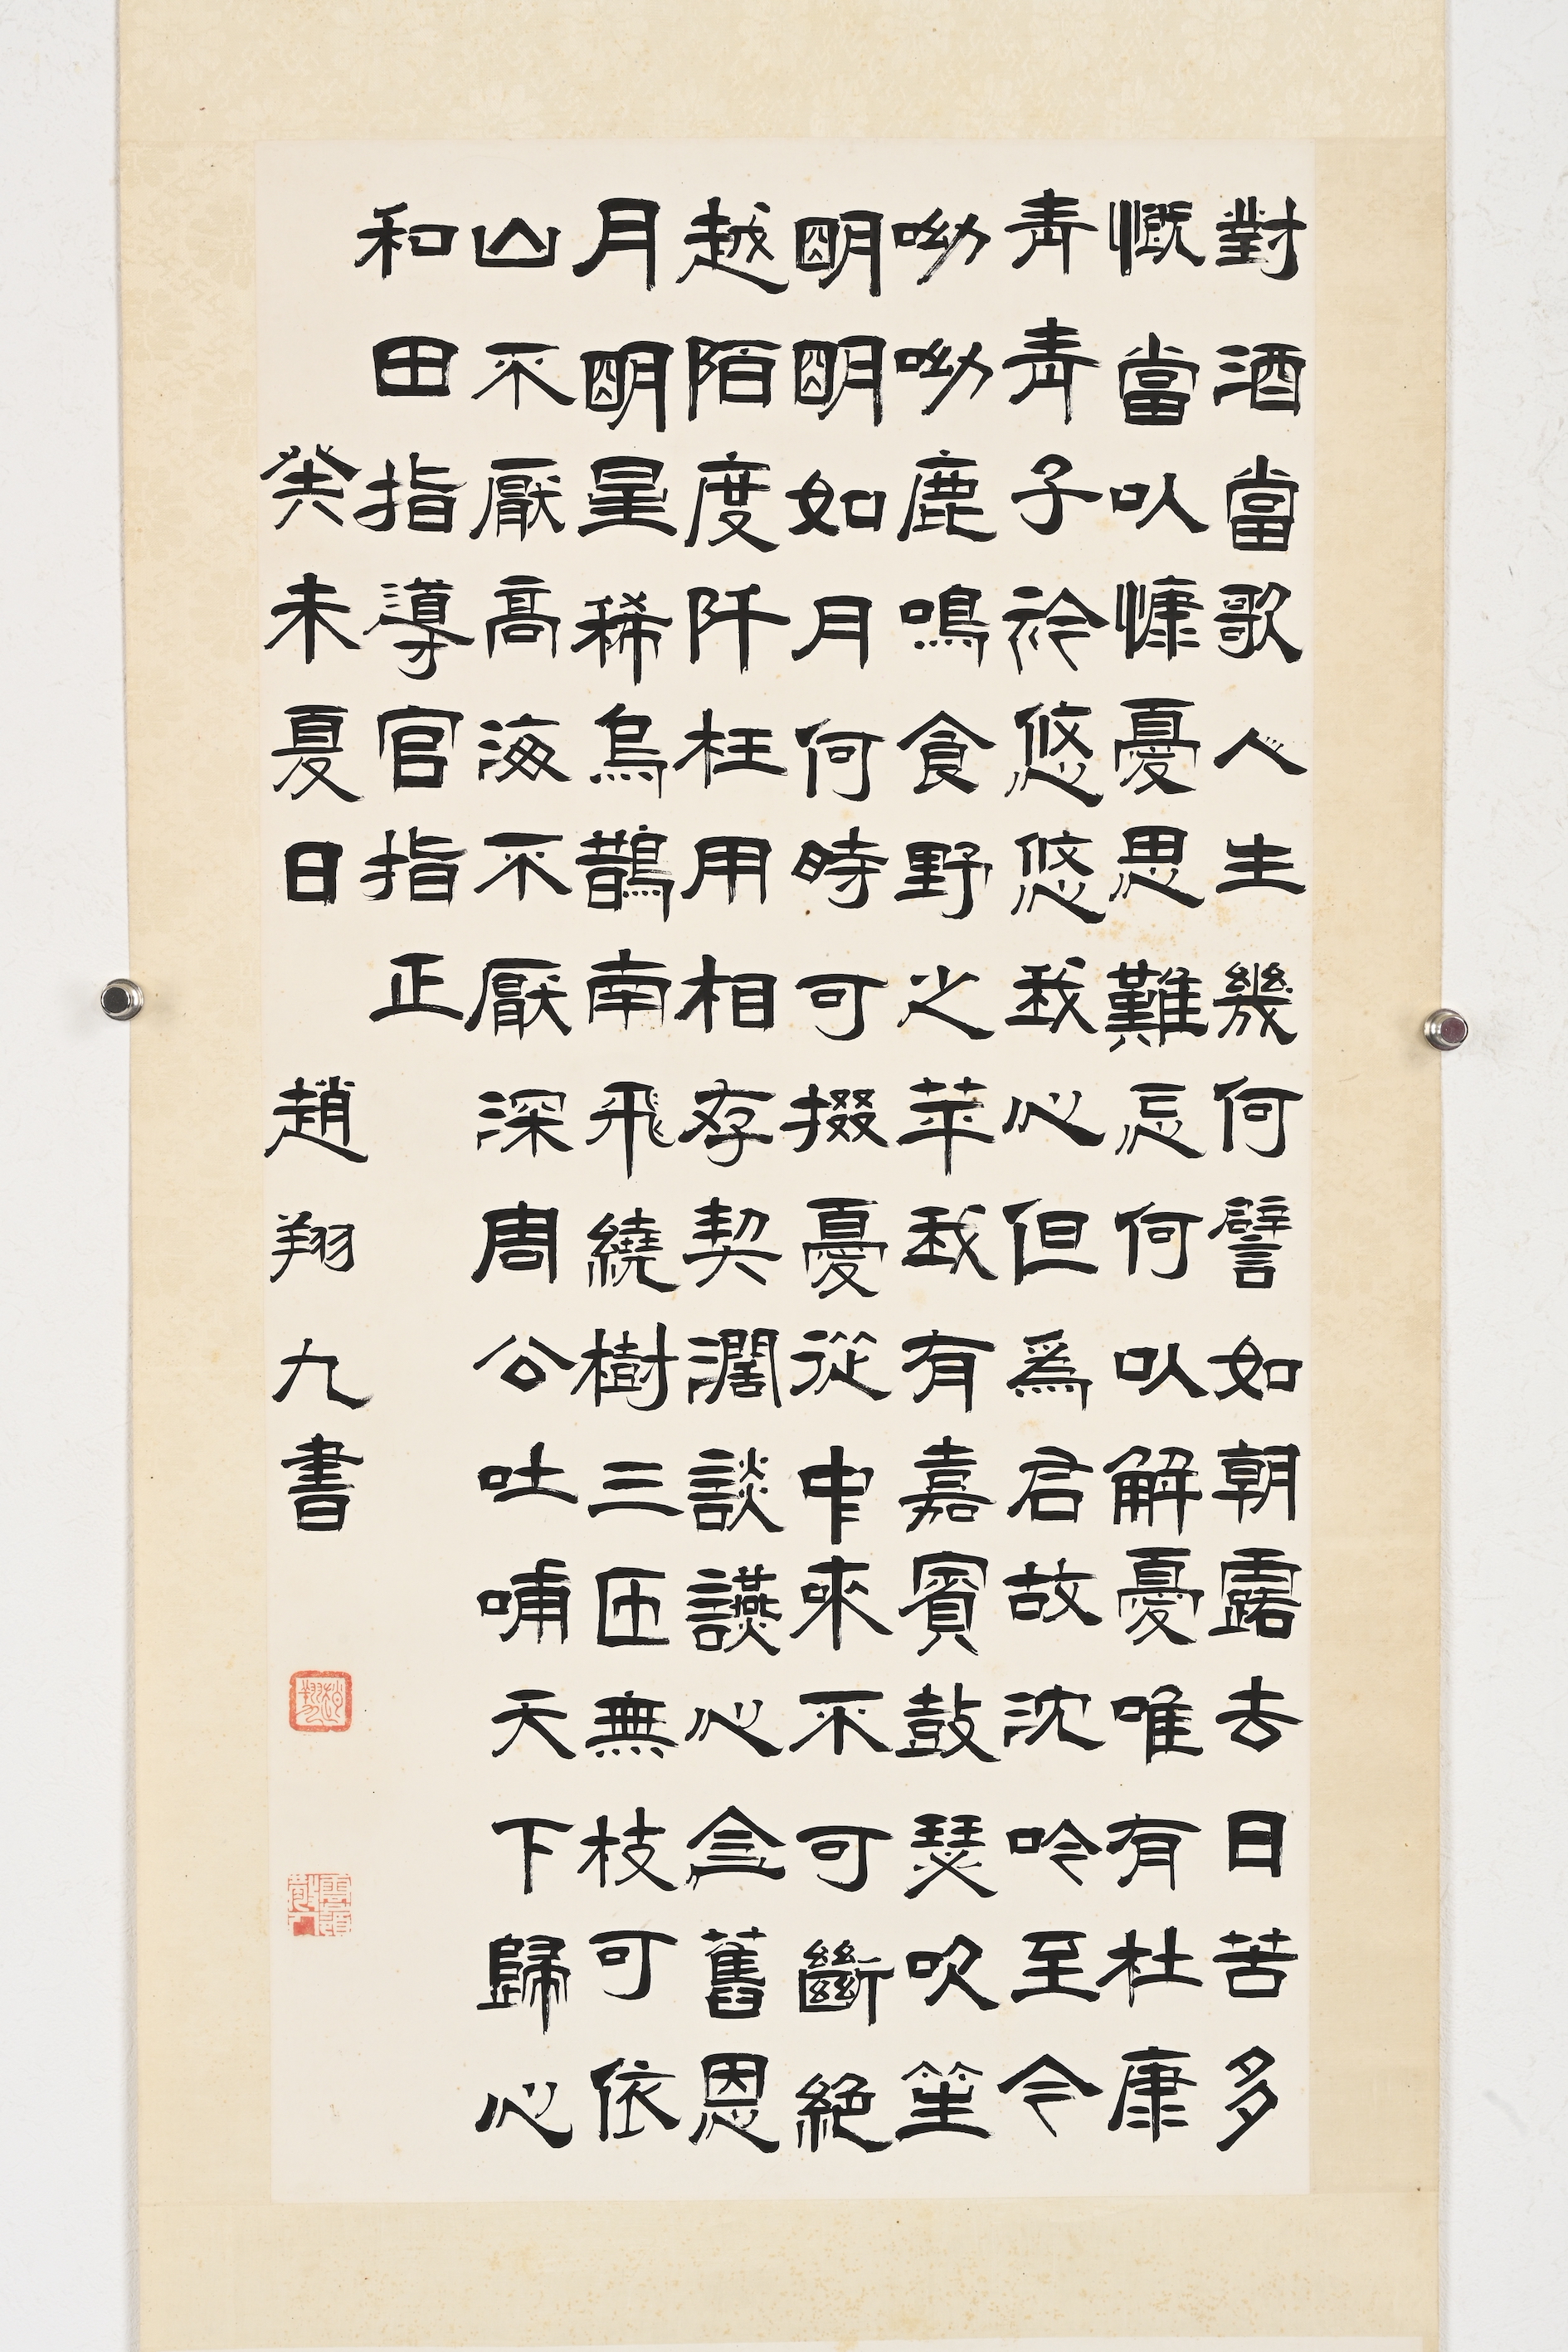 對酒當歌人生幾何譬如朝露去日苦多
慨當以慷憂思難忘何以解憂唯有杜康
青青子衿悠悠我心但爲君故沈吟至今
呦呦鹿鳴食野之苹我有嘉賓鼓瑟吹笙
明明如月何時可掇憂從中來不可斷絕
越陌度阡枉用相存契濶談讌心念舊恩
月明星稀烏鵲南飛繞樹三匝無枝可依
山不厭高海不厭深周公吐哺天下歸心
和田指導官指正
癸未夏日 趙翔九書
趙翔九